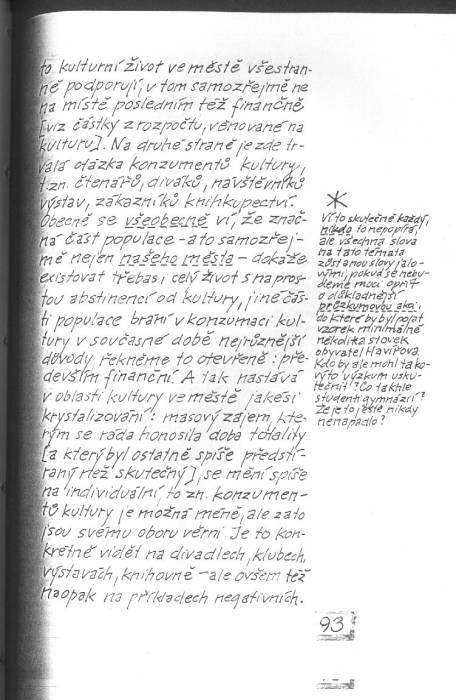 to kulturní život ve městě všestran-
ně podporují, v tom samozřejmě ne
na místě posledním též finančně
[viz částky z rozpočtu, věnované na
kulturu]. Na druhé straně je zde tr-
valá otázka konzumentů kultury,
tzn. čtenářů, diváků, návštěvníků
výstav, zákazníků knihkupectví.
Obecně se všeobecně ví, že znač-
ná část populace – a to samozřej-
mě nejen našeho města – dokáže
existovat třebas i celý život s napros-
tou abstinencí od kultury, jiné čás-
ti populace brání v konzumaci kul-
tury v současné době nejrůznější
důvody řekněme to otevřeně: pře-
devším finanční. A tak nastává
v oblasti kultury ve městě jakési
krystalizování: masový zájem, kte-
rým se ráda honosila doba totality
[a který byl ostatně spíše předstí-
raný než skutečný], se mění spíše
na individuální, to zn. konzumen-
tů kultury je možná méně, ale zato
jsou svému oboru věrni. Je to kon-
krétně vidět na divadlech, klubech,
výstavách, knihovně – ale ovšem též
naopak na příkladech negativních.
*
Ví to skutečně každý,
nikdo to nepopírá,
ale všechna slova
na tato témata
zůstanou slovy jalo-
vými, pokud se nebu-
deme moci opřít
o důkladnější
průzkumovou akci,
do které by byl pojat
vzorek minimálně
několika stovek
obyvatel Havířova.
Kdo by ale mohl tako-
výto výzkum usku-
tečnit? Co takhle
studenti gymnázií?
Že je to ještě nikdy
nenapadlo?
93